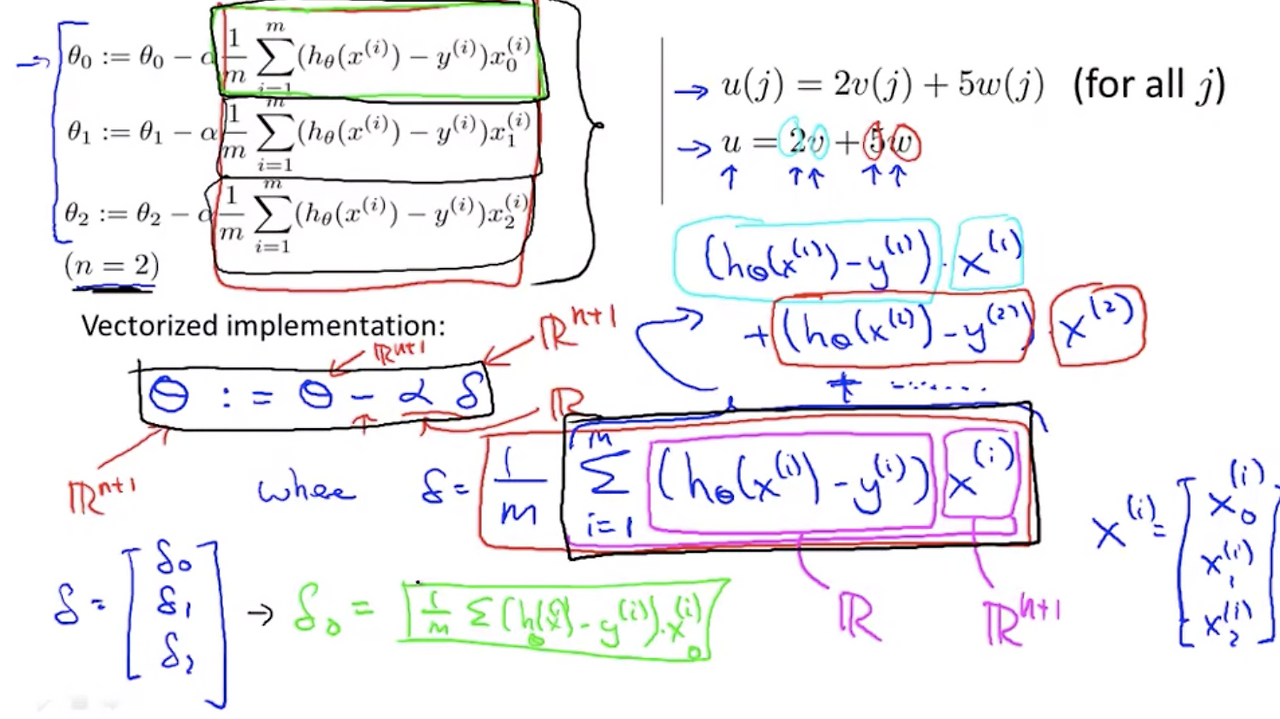 θ₀ := θ₀ − α 1/m ∑_{i=1}^{m} (h_θ(x^{(i)}) − y^{(i)})x₀^{(i)}
θ₁ := θ₁ − α 1/m ∑_{i=1}^{m} (h_θ(x^{(i)}) − y^{(i)})x₁^{(i)}
θ₂ := θ₂ − α 1/m ∑_{i=1}^{m} (h_θ(x^{(i)}) − y^{(i)})x₂^{(i)}
(n = 2)
→ u(j) = 2v(j) + 5w(j) (for all j)
→ u = 2v + 5w
(h_θ(x^{(1)}) − y^{(1)}) · x^{(1)}
+ (h_θ(x^{(2)}) − y^{(2)}) x^{(2)}
+ ........
Vectorized implementation:
ℝ^{n+1}
ℝ^{n+1}
θ := θ − α δ
ℝ
ℝ^{n+1}
where δ = 1/m ∑_{i=1}^{m} (h_θ(x^{(i)}) − y^{(i)}) x^{(i)}
ℝ
ℝ^{n+1}
x^{(i)} = [x₀^{(i)}
x₁^{(i)}
x₂^{(i)}]
δ = [δ₀
δ₁
δ₂]
→ δ₀ = 1/m ∑ (h_θ(x^{(i)}) − y^{(i)}) · x₀^{(i)}